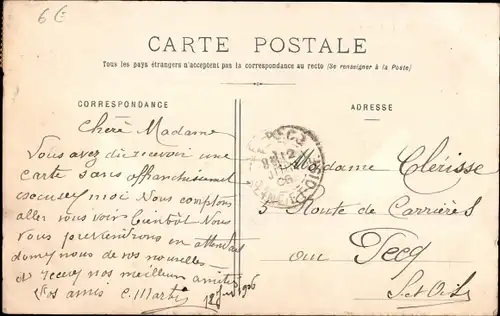 6€
CARTE POSTALE
Tous les pays étrangers n'acceptent pas la correspondance au recto (Se renseigner à la Poste)
CORRESPONDANCE
Chère Madame
Vous avez du recevoir une
carte sans affranchissement
excusez moi Nous comptons
aller vous voir bientôt Nous
vous previendrons en attendant
donnez nous de vos nouvelles
et recevez nos meilleurs amitiés
Vos amis C. Martin
12 1906
ADRESSE
Madame Clérisse
5 Route de Carrières
au Pecq
S et Oise
LE PECQ
12
06
SEINE-ET-OISE